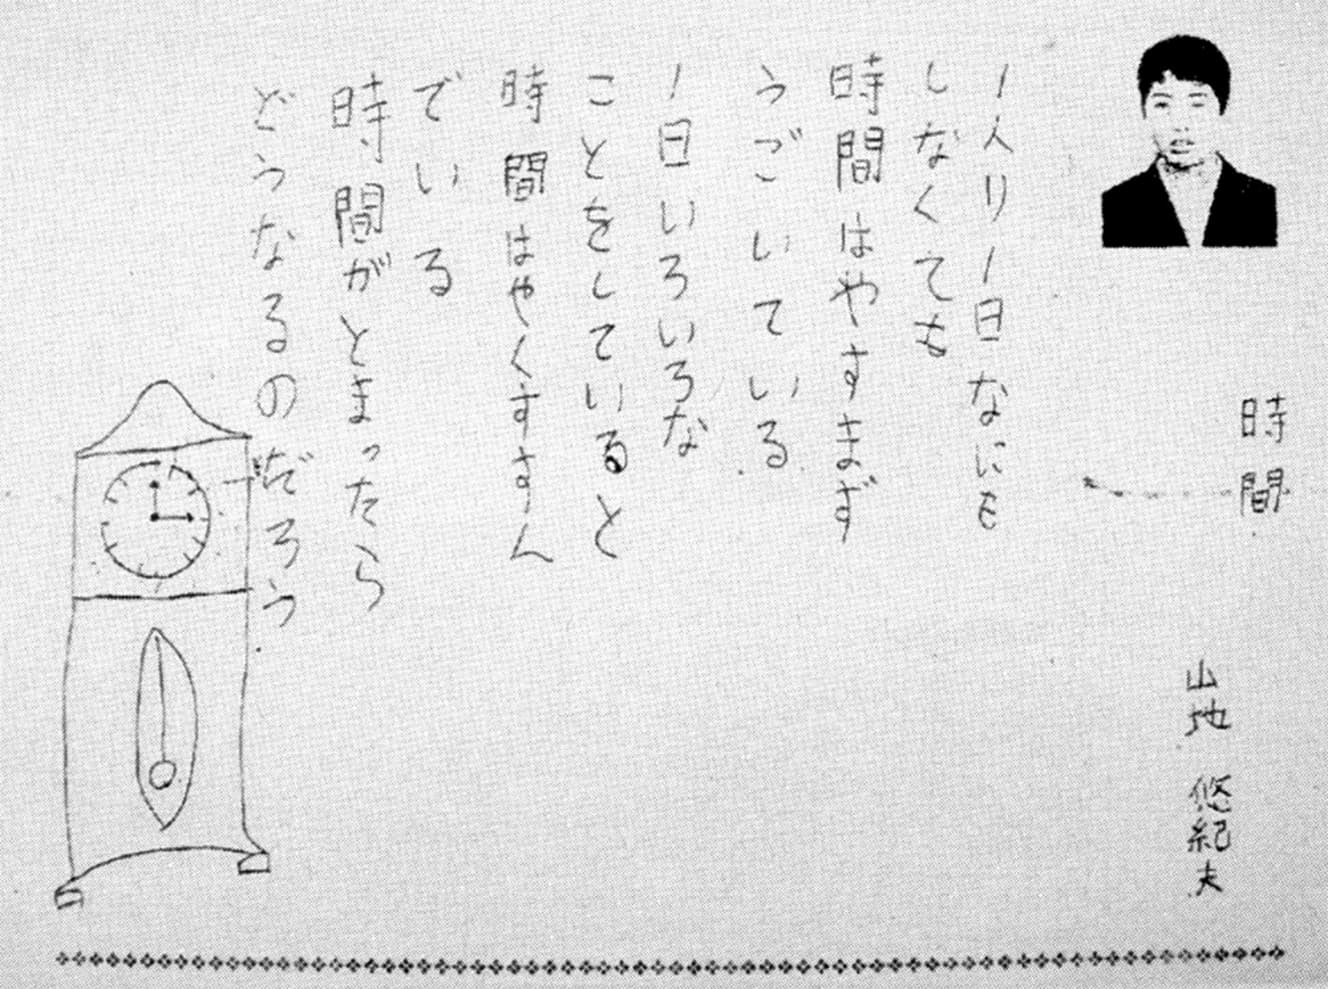 時間
山地 悠紀夫
1人1人1日なにを
しなくても
時間はやすまず
うごいている
1日いろいろな
ことをしていると
時間はやくすすん
でいる
時間がとまったら
どうなるのだろう